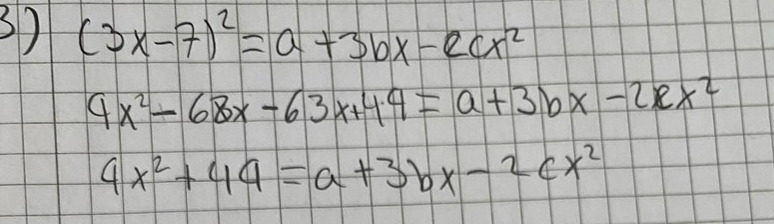 3) (3x-7)² = a + 3bx - 2cx²
9x² - 63x - 63x + 49 = a + 3bx - 2cx²
9x² + 49 = a + 3bx - 2cx²